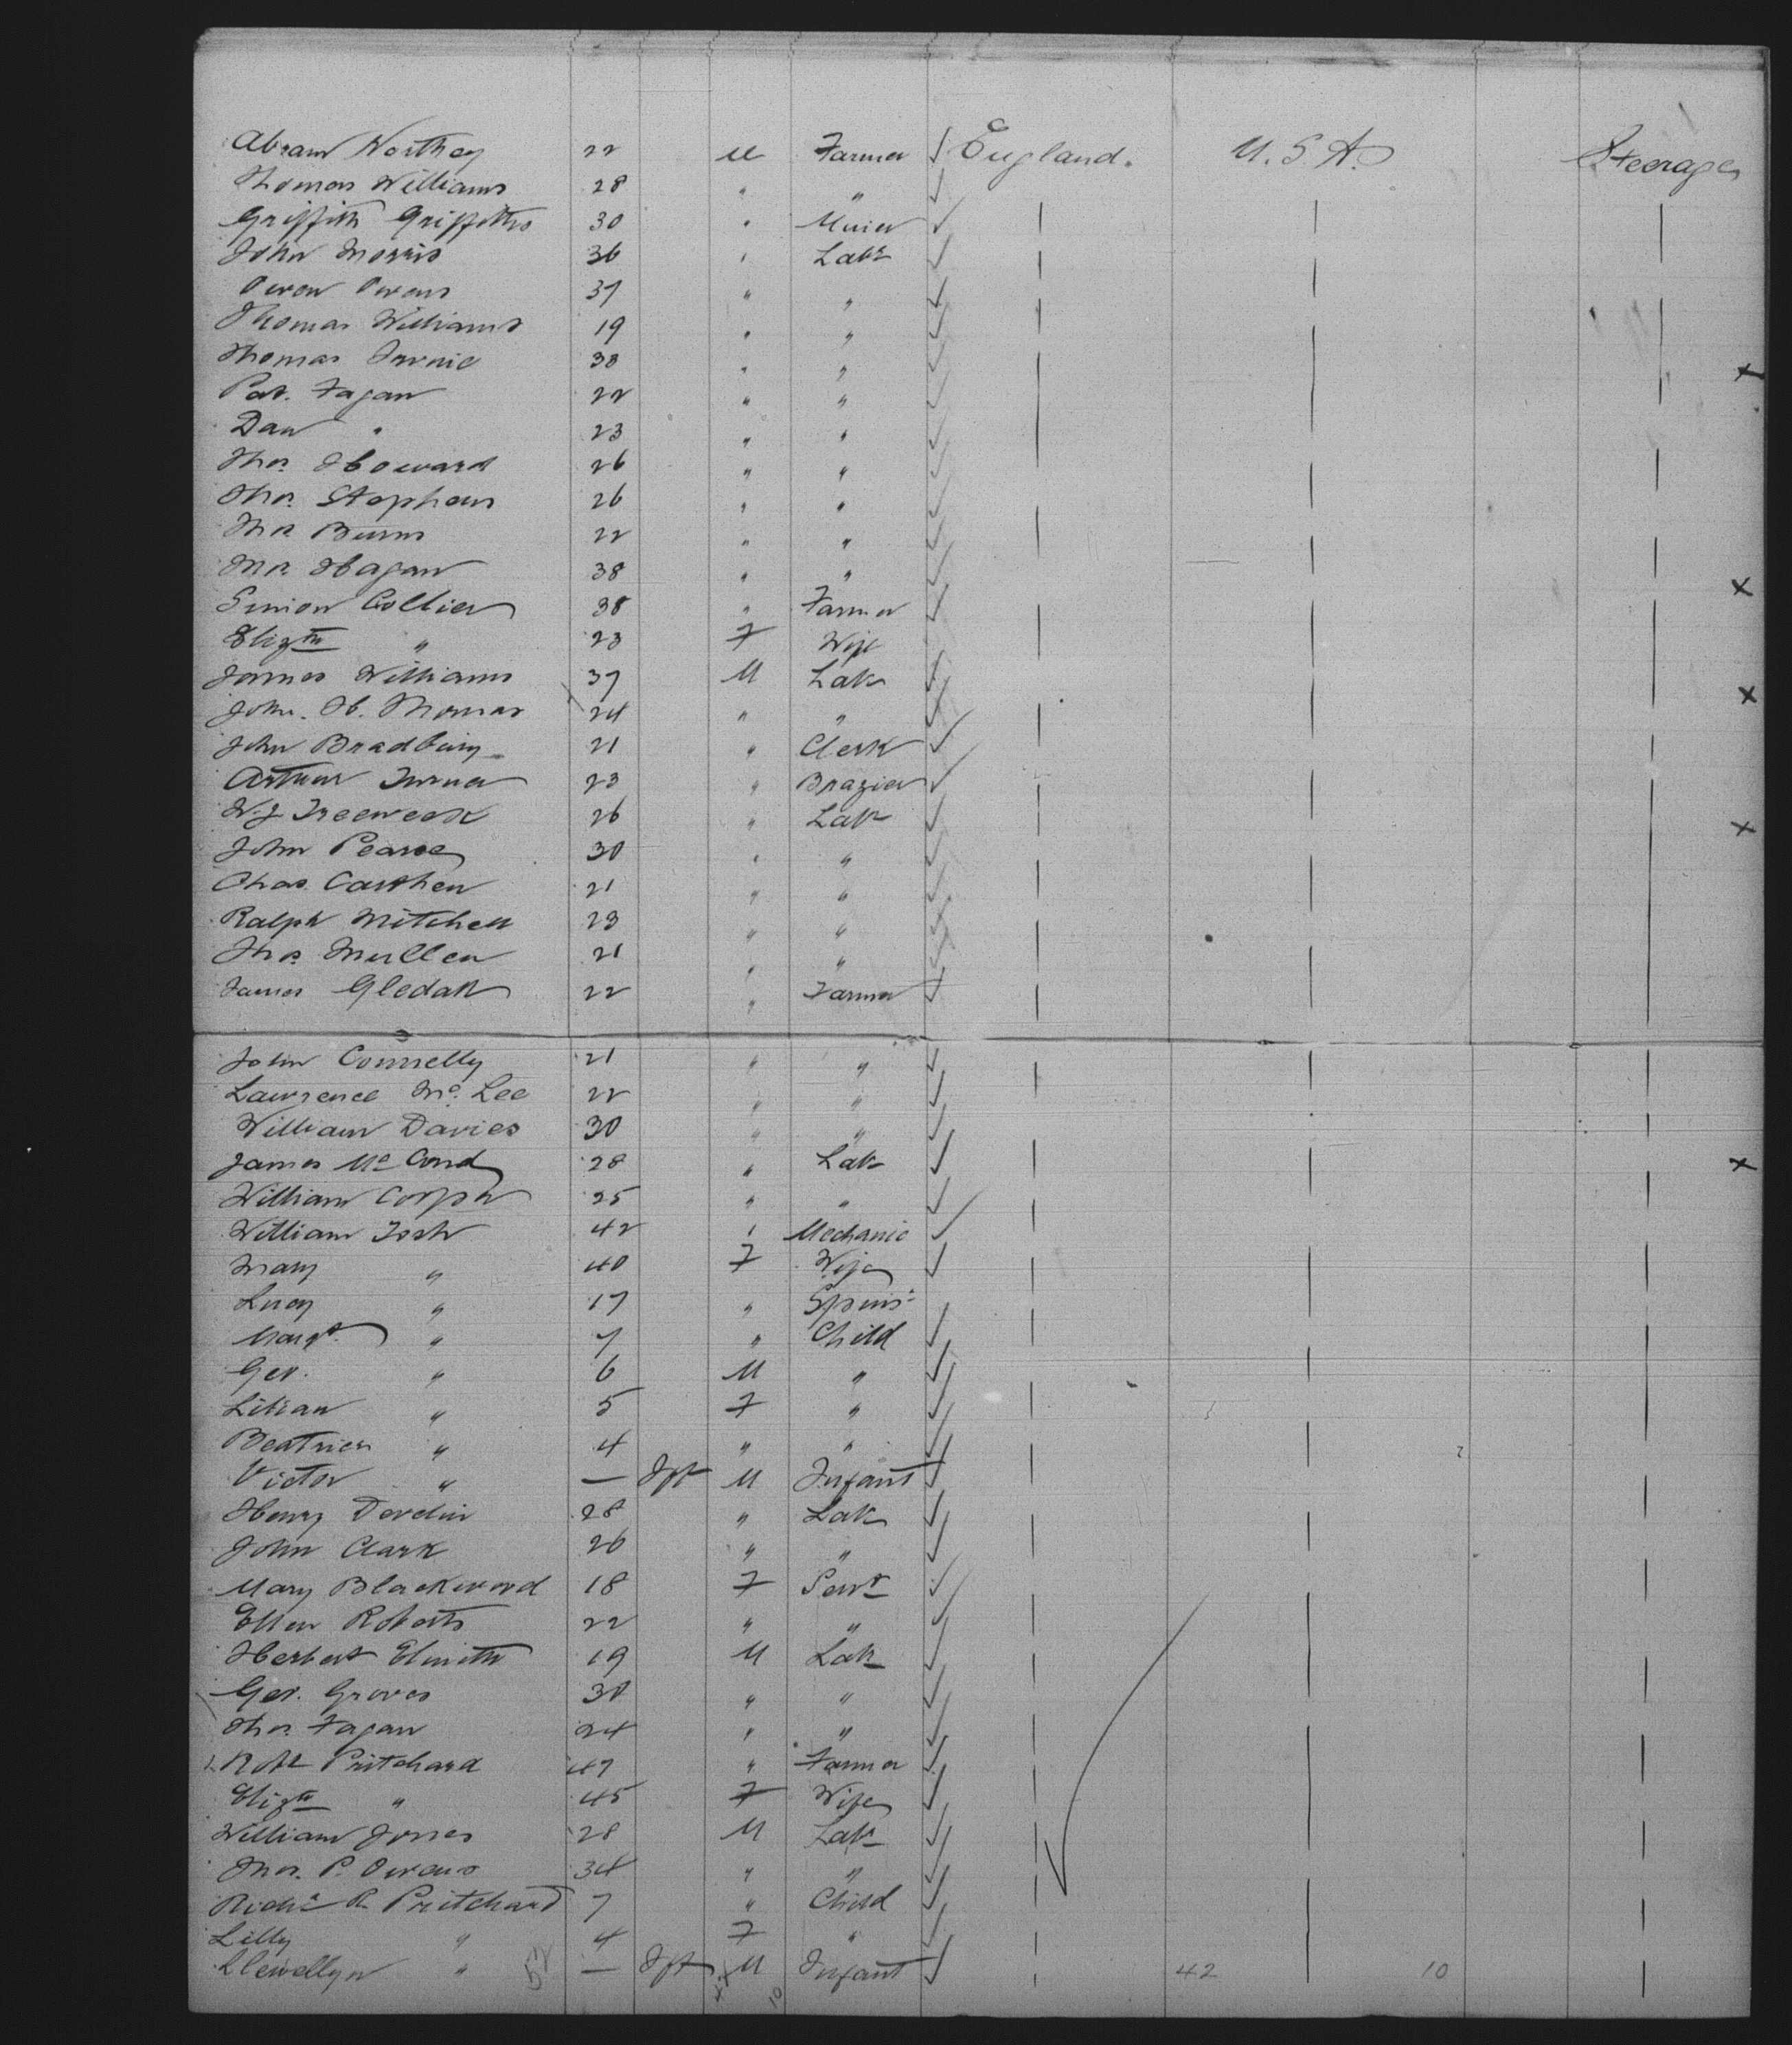 Abram Northey 22 M Farmer England. U.S.A. Steerage
Thomas Williams 28 " "
Griffith Griffiths 30 " Miner
John Morris 36 " Labr
Owen Owens 37 " "
Thomas Williams 19 " "
Thomas 38 " "
Pat. Fagan 22 " "
Dan " 23 " "
Thos. Howard 26 " "
Thos. Stephens 26 " "
Thos Burns 22 " "
Thos Hagan 38 " "
Simon Collier 38 " Farmer
Elizth " 23 F Wife
James Williams 37 M Labr
John. H. Thomas 24 " "
John Bradbury 21 " Clerk
Arthur Turner 23 " Brazier
W.J Treeweek 26 " Labr
John Pearce 30 " "
Chas. Carthew 21 " "
Ralph Mitchell 23 " "
Thos. Mullen 21 " "
James 22 " Farmer
John Connelly 21 " "
Lawrence Mc. Lee 22 " "
William Davies 30 " "
James Mc 28 " Labr
William 25 " "
William Tosh 42 " Mechanic
Mary " 40 F Wife
Lucy " 17 " Spins
Margt. " 7 " Child
Geo. " 6 M "
Lilian " 5 F "
Beatrice " 4 " "
Victor " — Ift M Infant
Henry 28 " Labr
John Clark 26 " "
Mary Blackwood 18 F Servt
Ellen Roberts 22 " "
Herbert 19 M Labr
Geo. Groves 30 " "
Thos. Fagan 24 " "
Robt Pritchard 47 " Farmer
Elizth " 45 F Wife
William Jones 28 M Labr
Thos. P. Owens 34 " "
Richd R. Pritchard 7 " Child
Lilly " 4 F "
Llewellyn " 52 — Ift M Infant 42 10
10